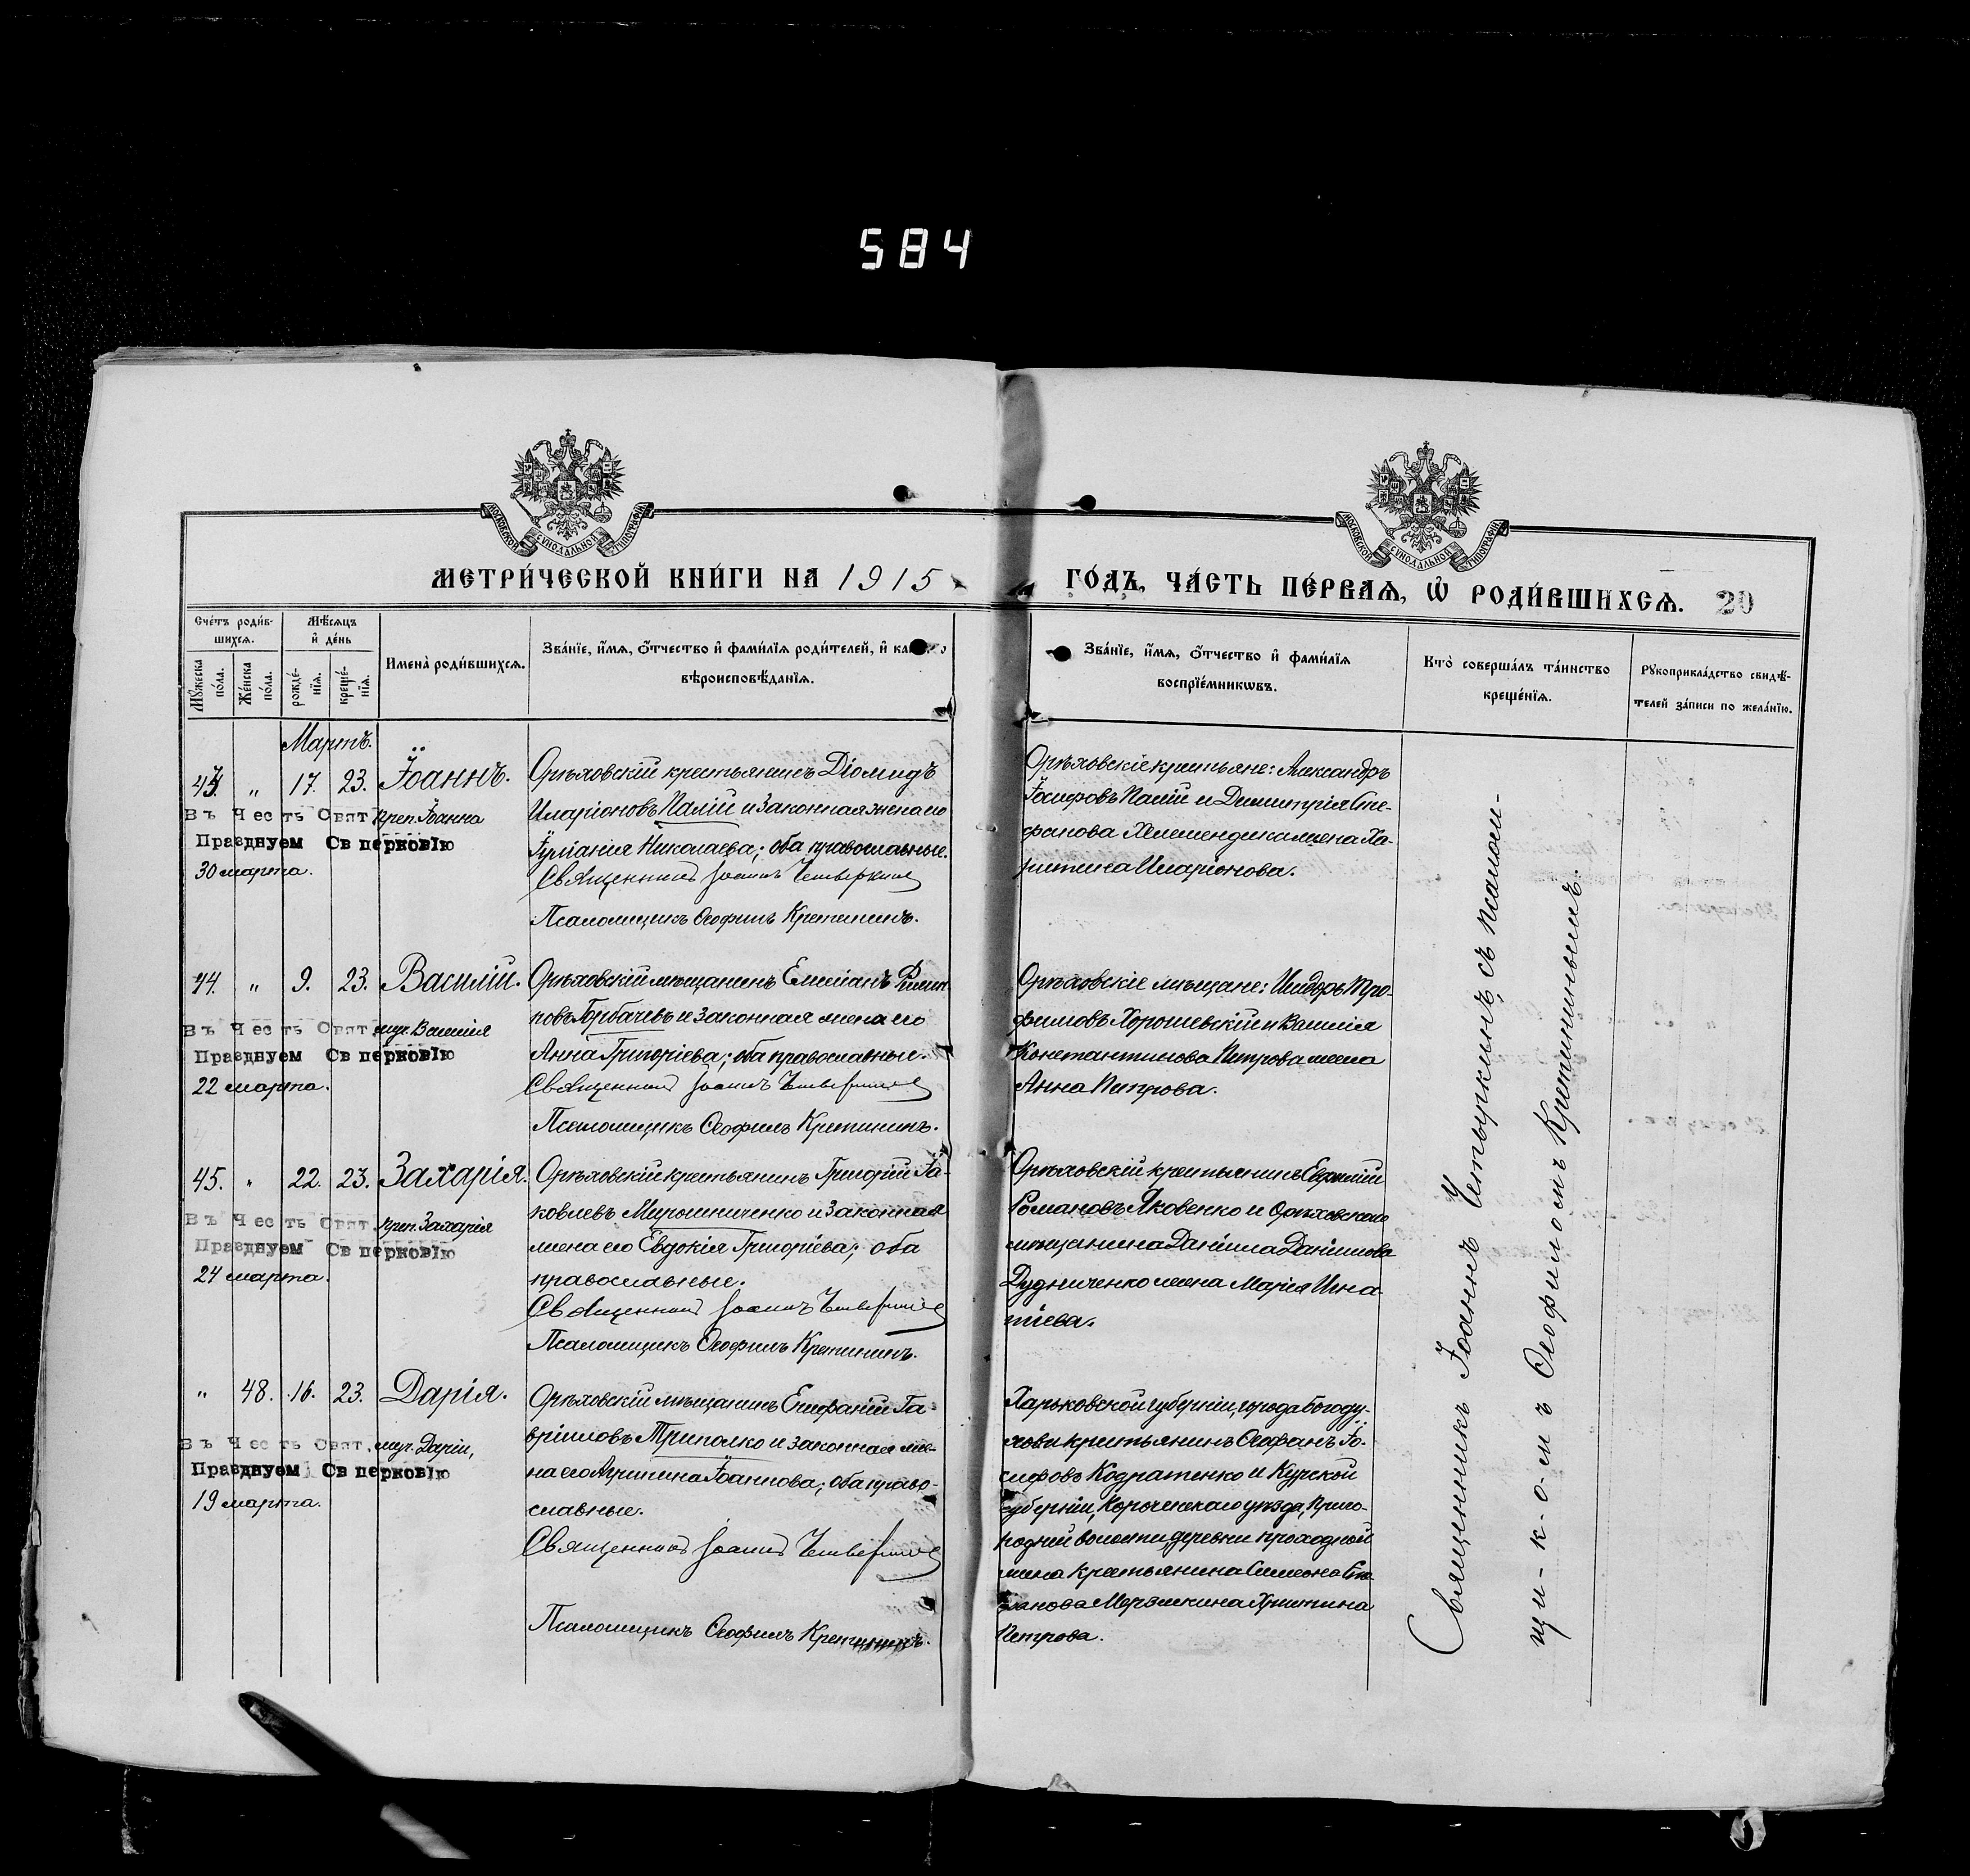 584
МОСКОВСКОЙ СѴНОДАЛЬНОЙ ТИПОГРАФІИ
МОСКОВСКОЙ СѴНОДАЛЬНОЙ ТИПОГРАФІИ
МЕТРИ́ЧЕСКОЙ КНИ́ГИ НА 1915
ГО́ДЪ, ЧА́СТЬ ПЕ́РВАѦ, Ѡ҆ РОДИ́ВШИХСѦ. 20
Сче́тъ роди́в-
шихсѧ.
Мѣ́сѧцъ
и҆ де́нь
Мꙋ́жеска
по́ла.
Же́нска
по́ла.
рожде́-
нїѧ.
креще́-
нїѧ.
Имена̀ роди́вшихсѧ.
Зва́нїе, и҆́мѧ, ѻ҆́тчество и҆ фами́лїѧ роди́телей, и҆
вѣроисповѣ́данїѧ.
Зва́нїе, и҆́мѧ, ѻ҆́тчество и҆ фами́лїѧ
воспрїе́мникѡвъ.
Кто̀ соверша́лъ та́инство
креще́нїѧ.
Рꙋкоприкла́дство свидѣ́-
телей за́писи по жела́нїю.
Мартъ.
43. „ 17. 23. Іоаннъ.
Въ Честь Свят. преп. Іоанна
Празднуем Св церковію
30 марта.
Орѣховскій крестьянинъ Діомидъ
Иларіоновъ Палій и законная жена его
Іуліанія Николаева; оба православные.
Священникъ Іоаннъ Четыркинъ
Псаломщикъ Ѳеофилъ Кретининъ.
Орѣховскіе крестьяне: Александръ
Іосифовъ Палій и Димитрія Сте-
фанова жена Ха-
ритина Иларіонова.
44. „ 9. 23. Василій.
Въ Честь Свят. муч. Василія
Празднуем Св церковію
22 марта.
Орѣховскій мѣщанинъ Емиліанъ Филип-
повъ Горбачевъ и законная жена его
Анна Григоріева; оба православные.
Священникъ Іоаннъ Четыркинъ
Псаломщикъ Ѳеофилъ Кретининъ.
Орѣховскіе мѣщане: Исидоръ Тро-
фимовъ Хорошевскій и Василія
Константинова Петрова жена
Анна Петрова.
45. „ 22. 23. Захарія.
Въ Честь Свят. преп. Захарія
Празднуем Св церковію
24 марта.
Орѣховскій крестьянинъ Григорій Іа-
ковлевъ Мирошниченко и законная
жена его Евдокія Григоріева; оба
православные.
Священникъ Іоаннъ Четыркинъ
Псаломщикъ Ѳеофилъ Кретининъ.
Орѣховскій крестьянинъ Евфимій
Романовъ Яковенко и Орѣховскаго
мѣщанина Даніила Даніилова
Дудниченко жена Марія Игна-
тіева.
„ 48. 16. 23. Дарія.
Въ Честь Свят. муч. Даріи,
Празднуем Св церковію
19 марта.
Орѣховскій мѣщанинъ Епифаній Га-
вріиловъ Триполко и законная же-
на его Агрипина Іоаннова; оба право-
славные.
Священникъ Іоаннъ Четыркинъ
Псаломщикъ Ѳеофилъ Кретининъ.
Харьковской губерніи, города Богоду-
хова крестьянинъ Ѳеофанъ Іо-
сифовъ Кодратенко и Курской
губерніи, Корочанскаго уѣзда, Приго-
родней волости, деревни Проходной
жена крестьянина Симеона Сте-
фанова Мерзликина Христина
Петрова.
Священникъ Іоаннъ Четыркинъ, съ псалом-
щи-к-о-м-ъ Ѳеофиломъ Кретининымъ.